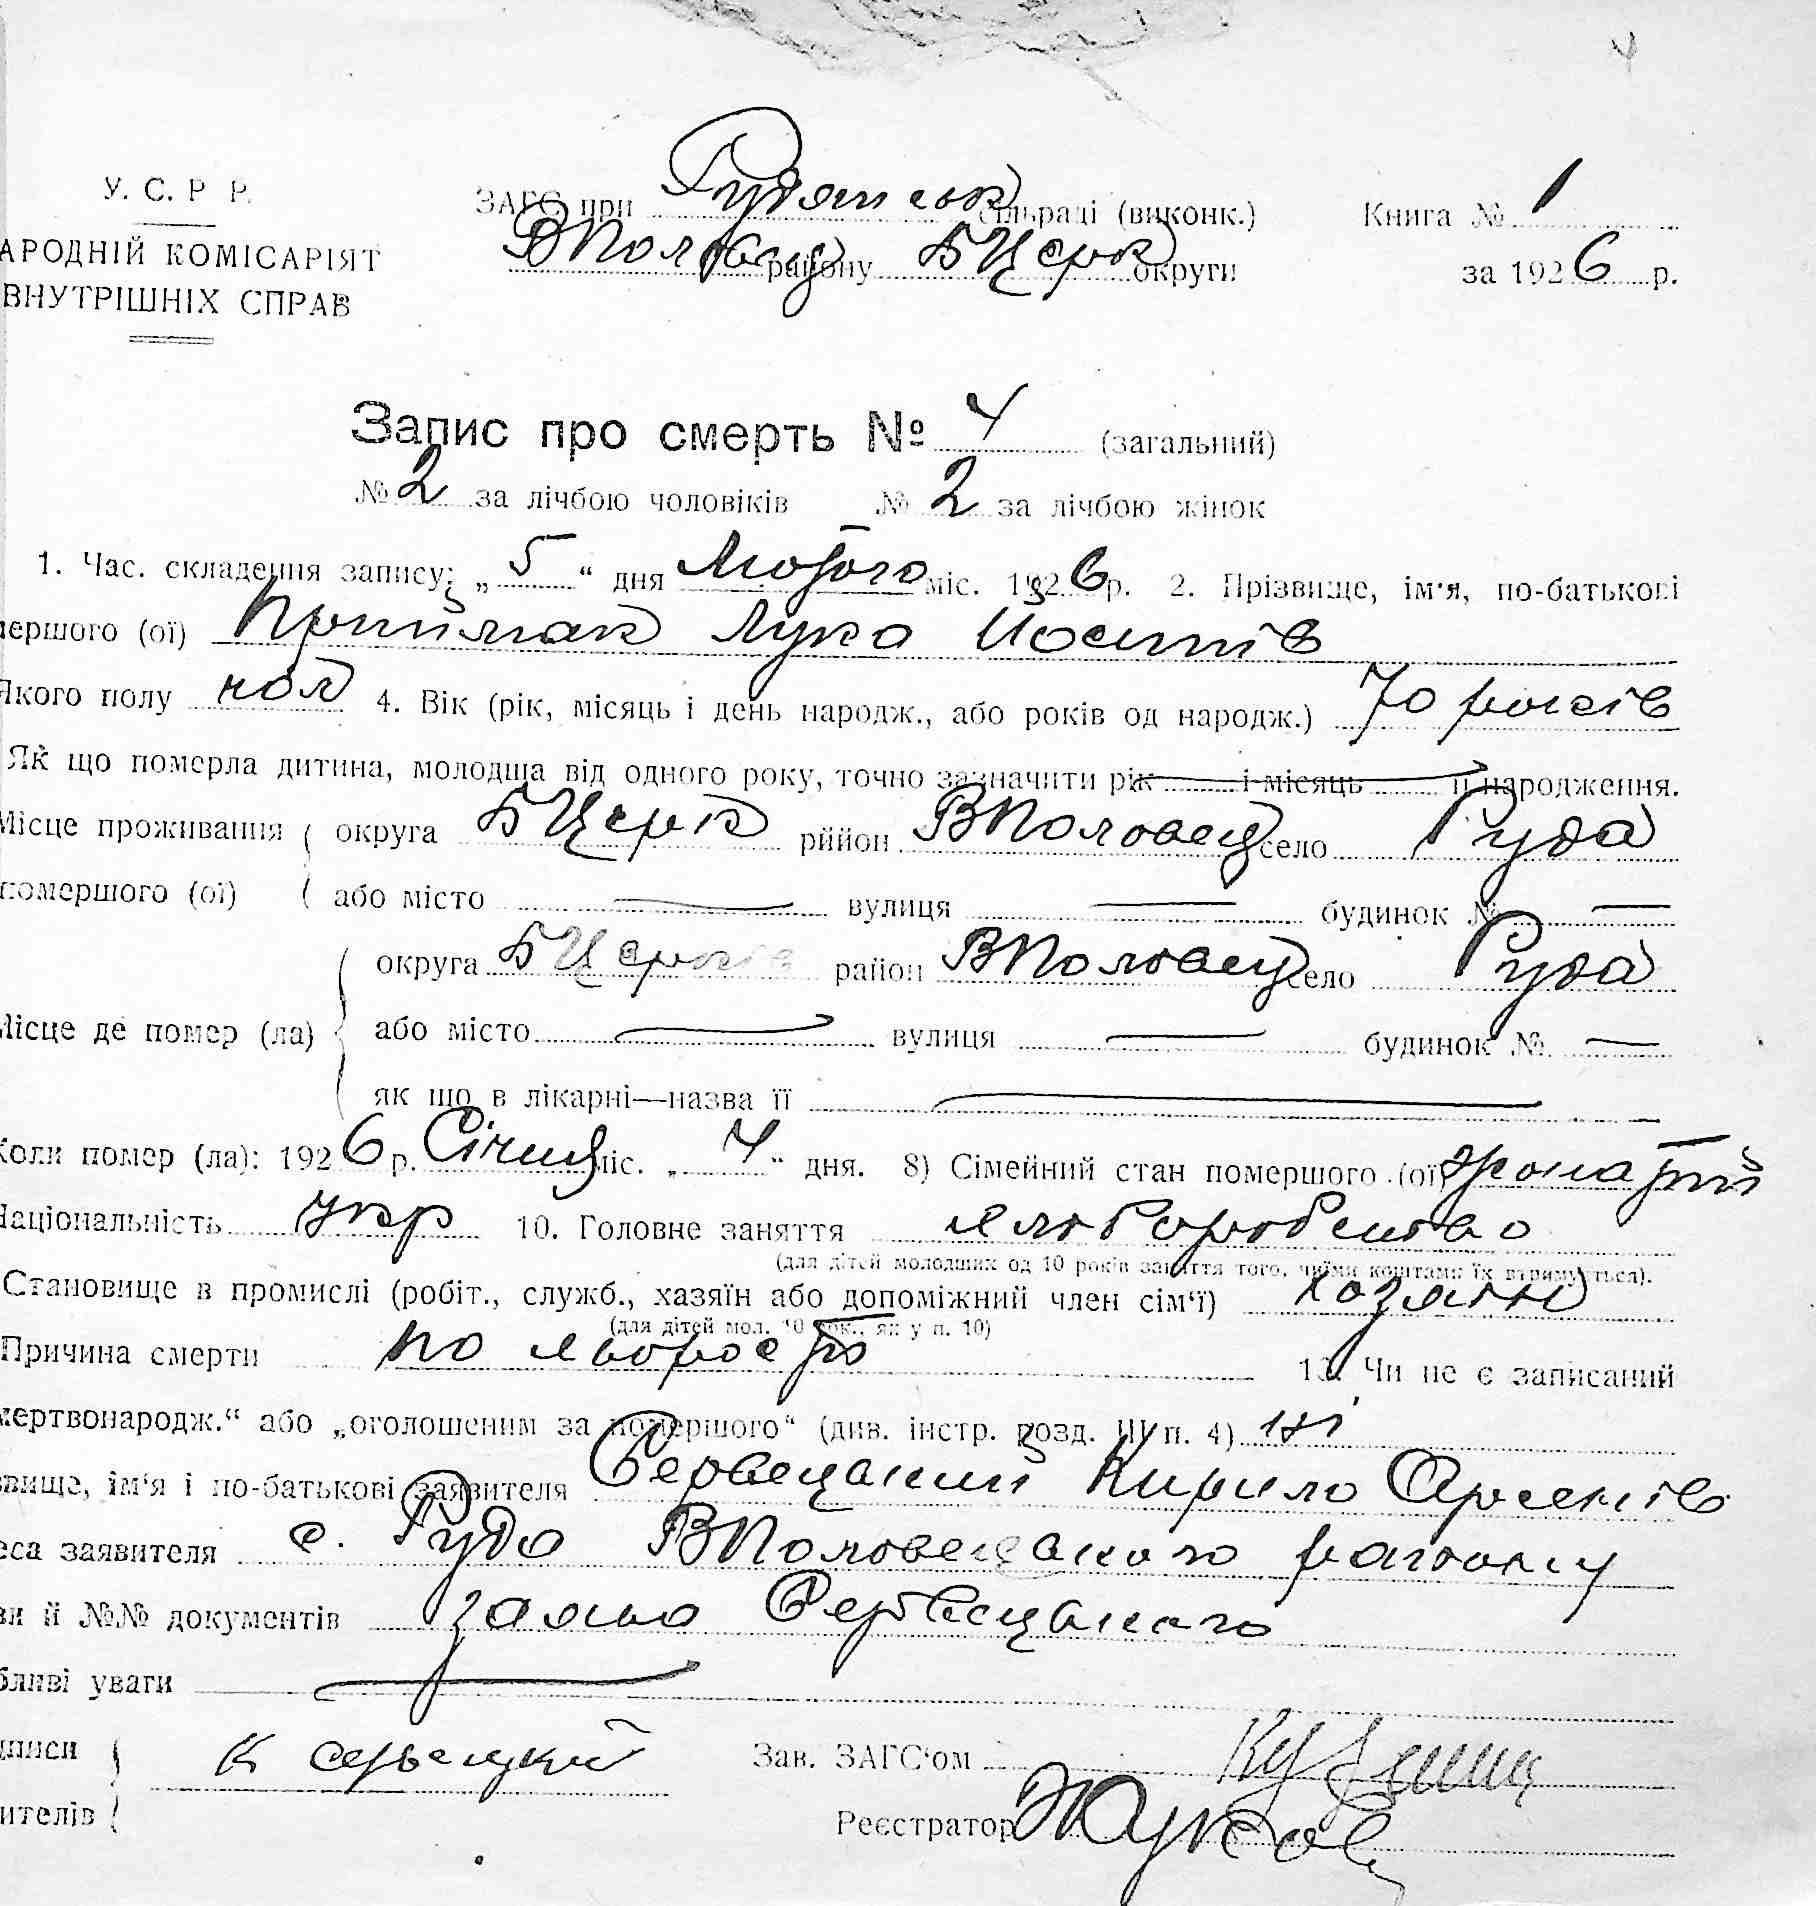 У. С. Р Р.
АРОДНІЙ КОМІСАРІЯТ
ВНУТРІШНІХ СПРАВ
ЗАГС при Рудянськ сільраді (виконк.)
ВПоловец району БЦерк округи
Книга № 1
за 1926 р.
Запис про смерть № 4 (загальний)
№ 2 за лічбою чоловіків № 2 за лічбою жінок
1. Час. складення запису: „5“ дня Лютого міс. 1926 р. 2. Прізвище, ім'я, по-батькові
мершого (ої) Приймак Лука Йосипів
Якого полу чол 4. Вік (рік, місяць і день народж., або років од народж.) 70 років
Як що померла дитина, молодша від одного року, точно зазначити рік і місяць її народження.
Місце проживання округа БЦерк рййон ВПоловец село Руда
помершого (ої) або місто — вулиця — будинок № —
округа БЦерків район ВПоловец село Руда
Місце де помер (ла) або місто — вулиця — будинок № —
як що в лікарні—назва її —
Коли помер (ла): 1926 р. Січня міс. „4“ дня. 8) Сімейний стан помершого (ої)
Національність укр 10. Головне заняття хліборобство
(для дітей молодших од 10 років заняття того, чиїми коштами їх втримується).
Становище в промислі (робіт., служб., хазяїн або допоміжний член сім'ї) хазяїн
(для дітей мол. 10 рок., як у п. 10)
Причина смерти по старость 13. Чи не є записаний
мертвонародж.“ або „оголошеним за помершого“ (див. інстр. розд. III п. 4) ні
звище, ім'я і по-батькові заявителя Сервецький Кирило Арсенів
еса заявителя с. Руда ВПоловецького району
ви й №№ документів заява Сервецького
бливі уваги —
дписи К Сервецкий Зав. ЗАГС'ом
ителів Реєстратор Жуков